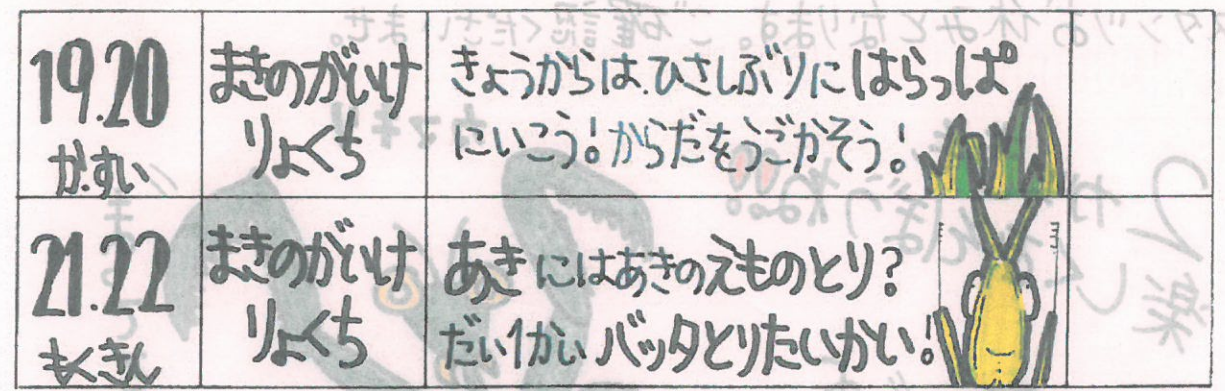 19.20
か.すい
まきのがいけ
りょくち
きょうからは.ひさしぶりにはらっぱ
にいこう!からだをうごかそう!
21.22
もくきん
まきのがいけ
りょくち
あきにはあきのえものとり?
だい1かいバッタとりたいかい!